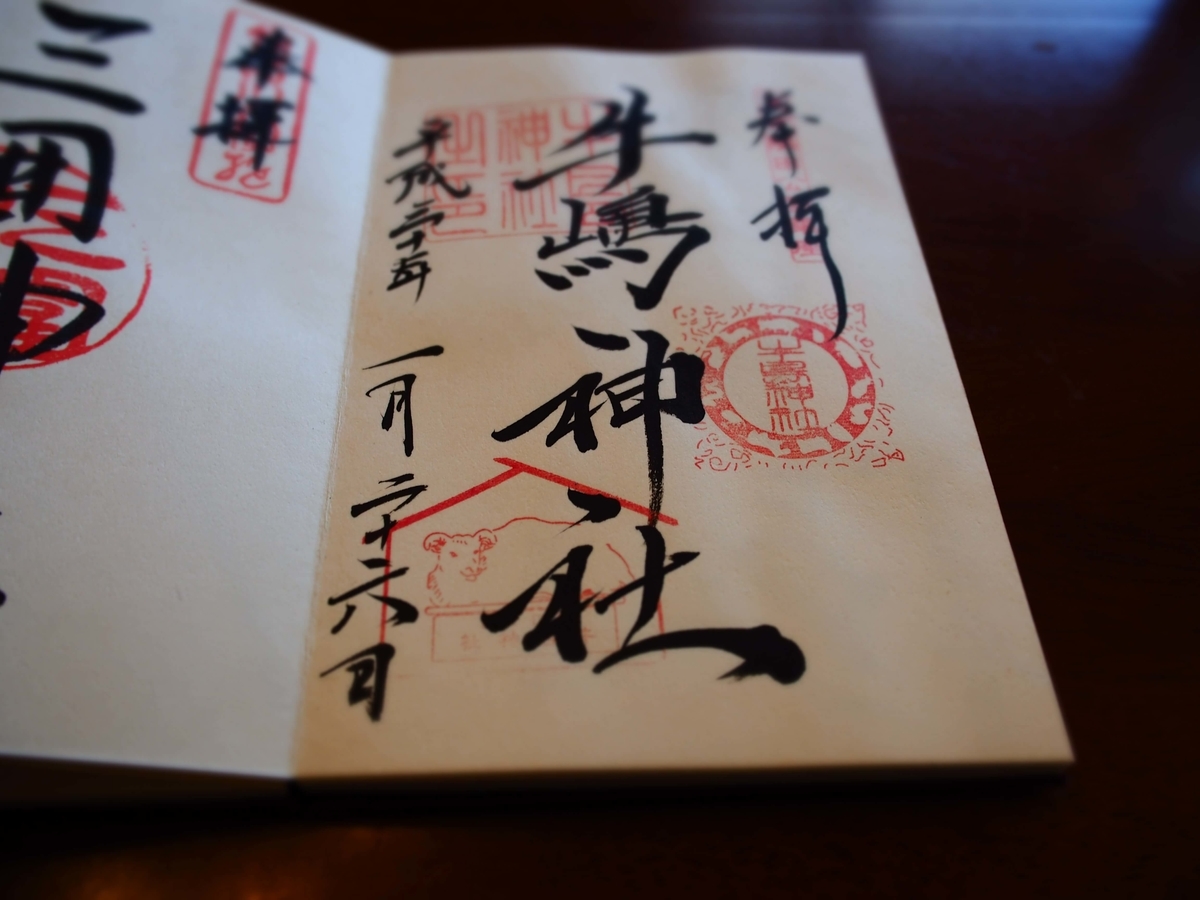 奉拝
牛嶋神社
平成二十五年 一月 二十六日
牛嶋神社
牛嶋神社之印
奉拝
三囲神